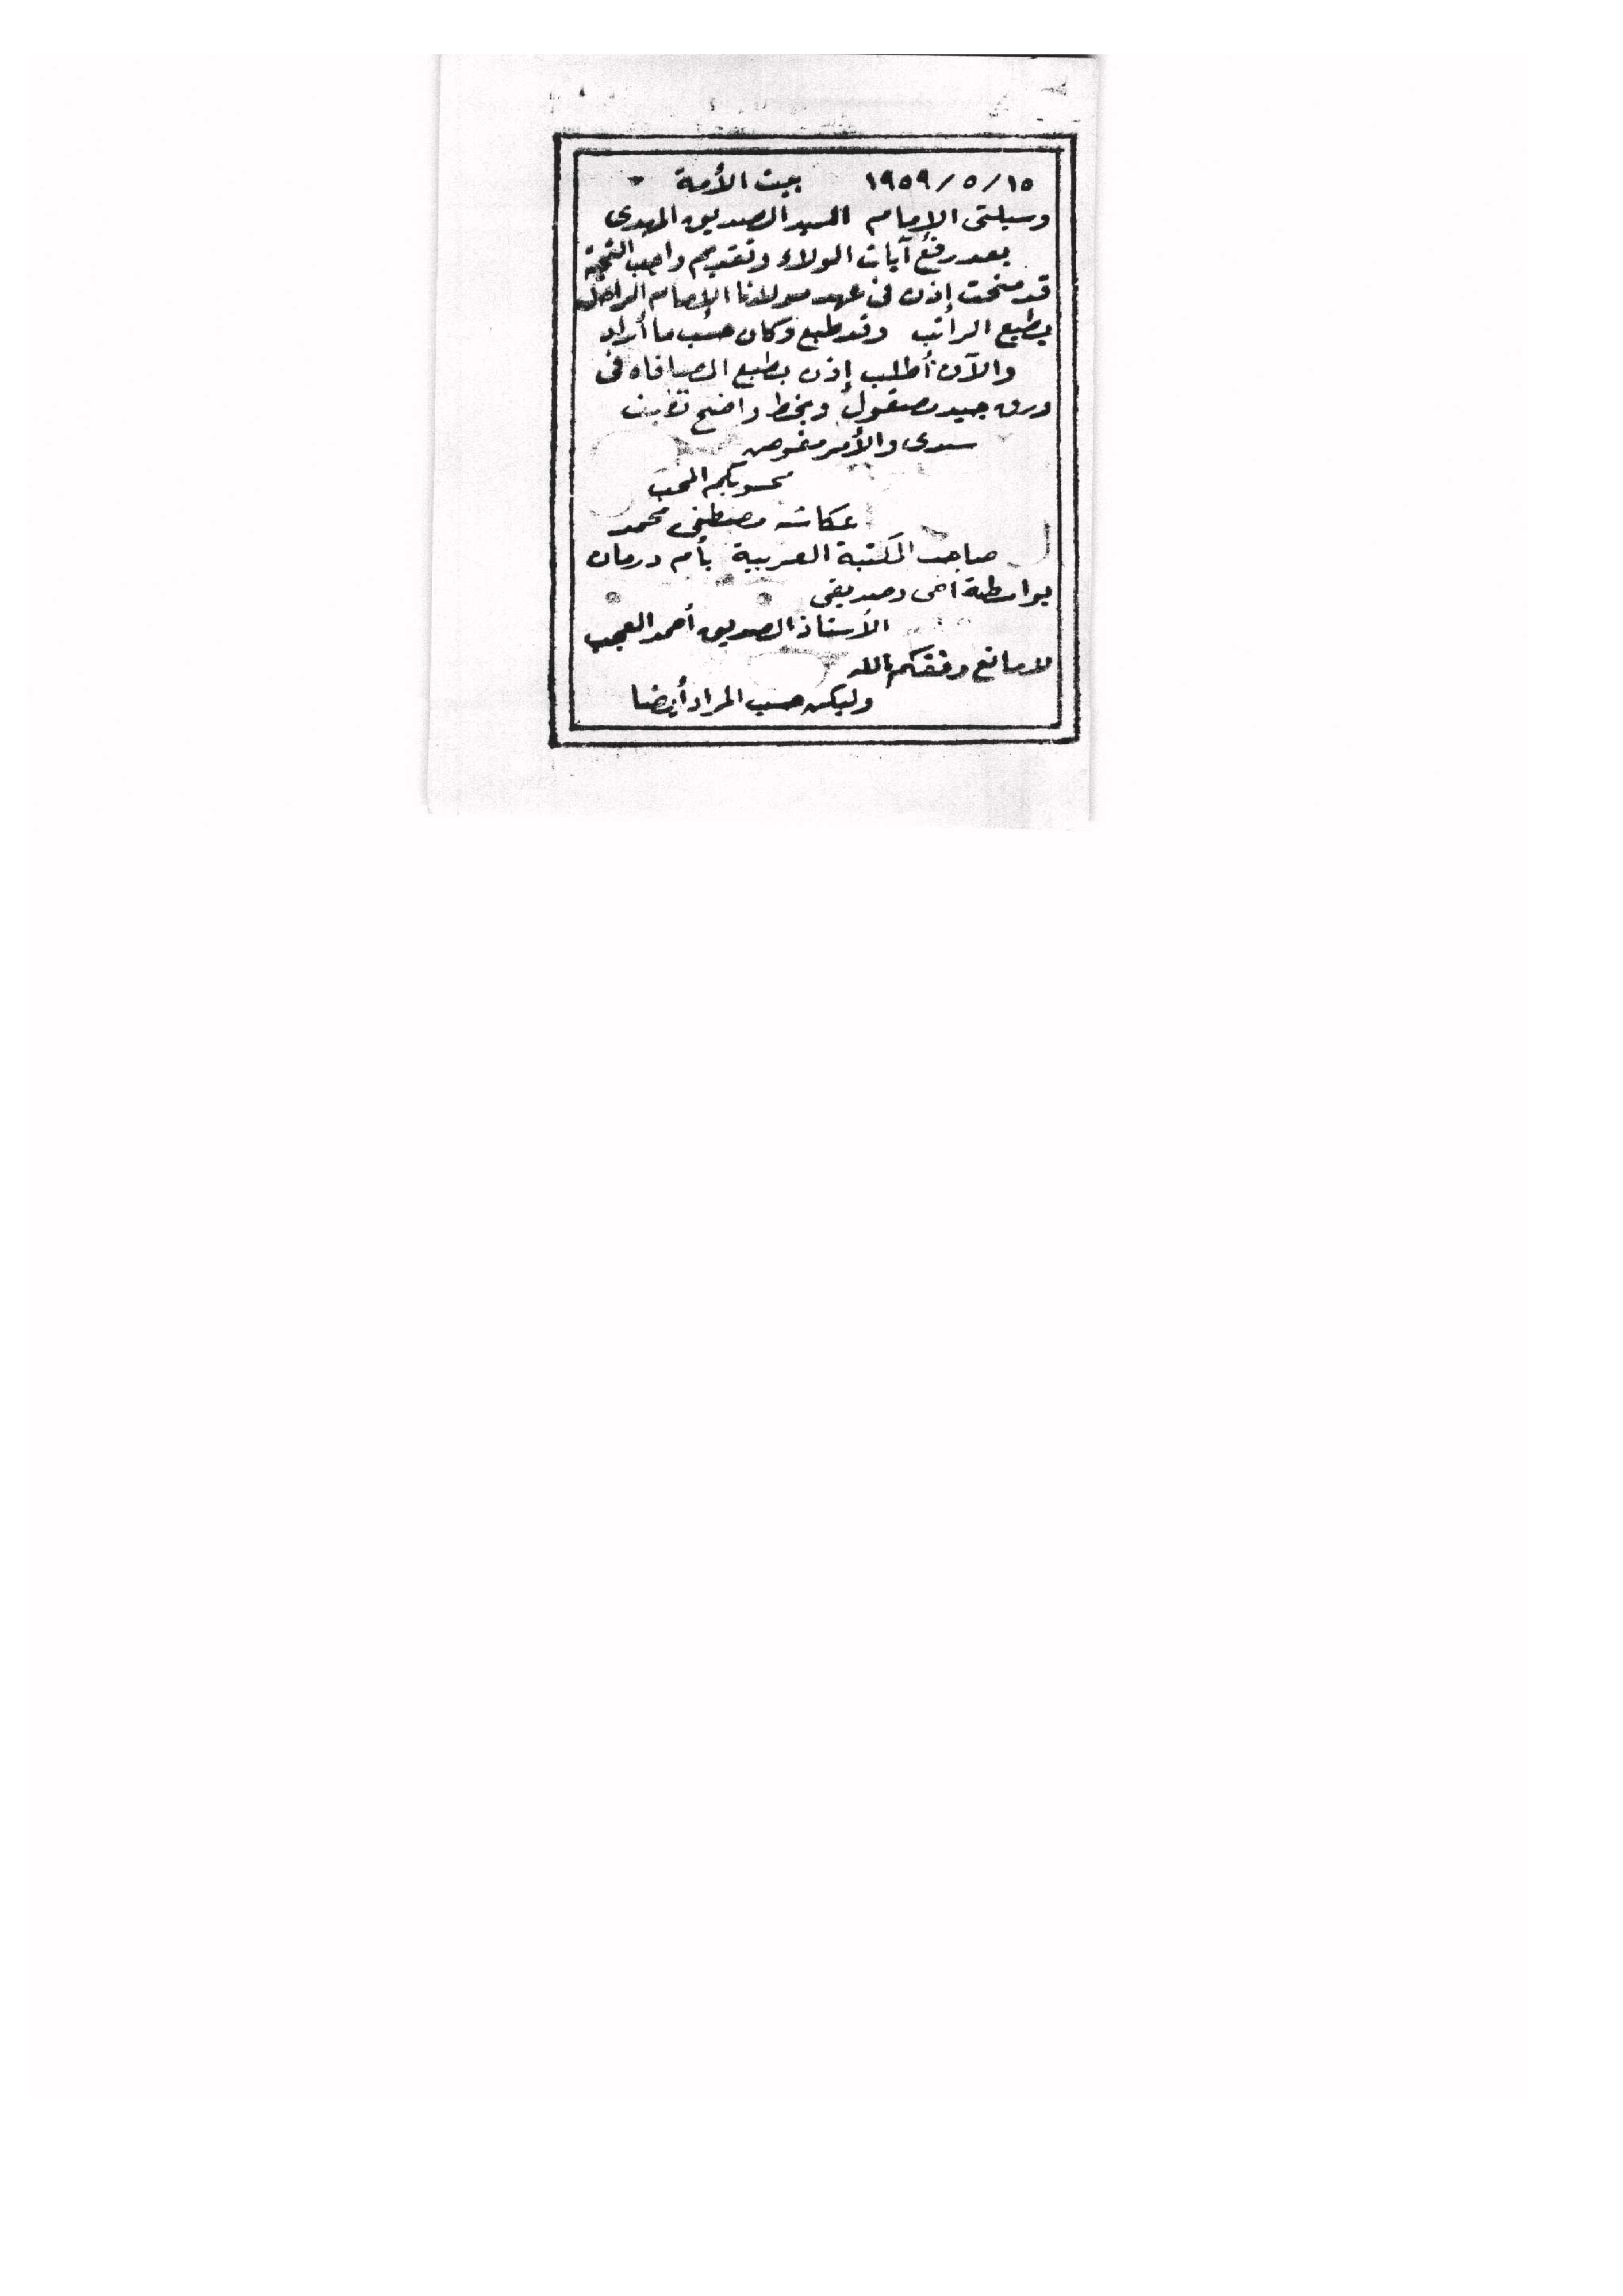 ١٥/٥/١٩٥٩ بيت الأمة
وسيلتى الإمام السيد الصديق المهدى
بعد رفع آيات الولاء وتقديم واجب التحية
قد منحت إذن فى عهد مولانا الإمام الراحل
بطبع الراتب وقد طبع وكان حسب ما أراد
والآن أطلب إذن بطبع المصافاه فى
ورق جيد مصقول وبخط واضح
سيدى والأمر مفوض
محسوبكم المحب
عكاشه مصطفى محمد
صاحب المكتبة العربية بأم درمان
بواسطة أخى وصديقى
الأستاذ الصديق أحمد العجب
لا مانع وفقكم الله
وليكن حسب المراد أيضا